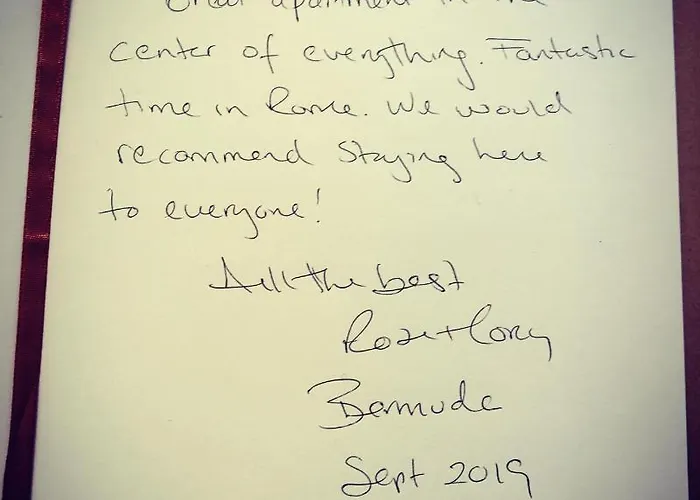 Great apartment in the
center of everything. Fantastic
time in Rome. We would
recommend staying here
to everyone!
All the best
Roze + Cory
Bermuda
Sept 2019